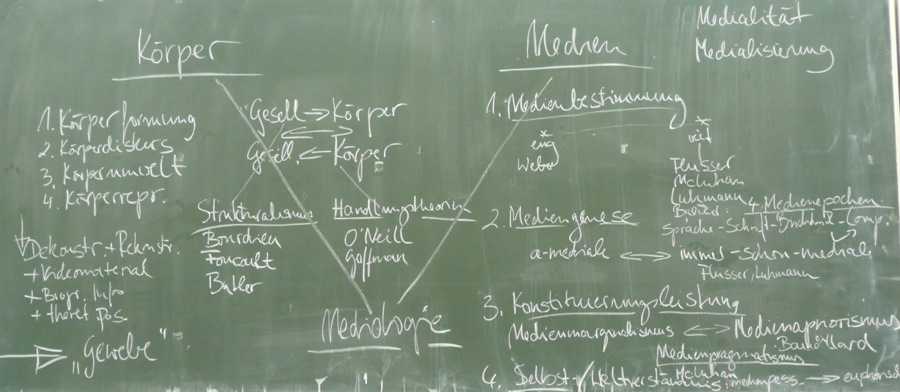 Körper
1. Körperformung
2. Körperdiskurs
3. Körperumwelt
4. Körperrepr.
Dekonstr. + Rekonstr.
+ Videomaterial
+ Biogr. Info
+ theret. Pos.
„Gewebe"
Gesell → Körper
Gesell ← Körper
Strukturalismus
Bourdieu
Foucault
Butler
Handlungstheorien
O'Neill
Goffman
Mediologie
Medien
Medialität
Medialisierung
1. Medienbestimmung
eng
Weber
weit
Flusser
McLuhan
Luhmann
4 Medienepochen
Sprache - Schrift - Buchdruck - Comp.
2. Mediengenese
a-mediale ↔ immer-schon-mediale
Flusser, Luhmann
3. Konstituierungsleistung
Medienmarginalismus ↔ Medienapriorismus
Baudrillard
Medienpragmatismus
McLuhan
4. Selbst-/Weltverständnis: medienpess. → euphorisch